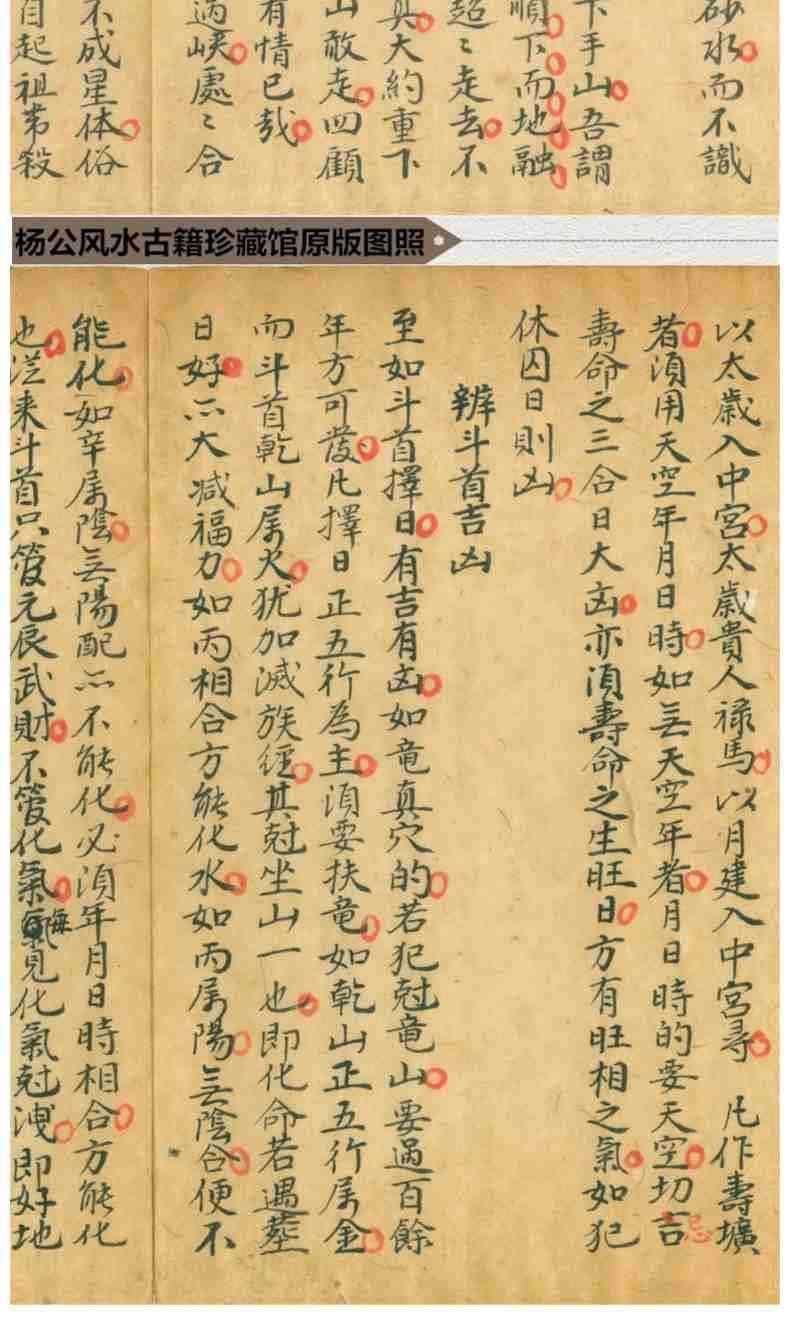 砂水而不識
下手山吾謂
順下而地融
超〻走去不
真大約重下
山敢走四顧
有情已哉
過峽處〻合
不成星体俗
自起祖帯殺
杨公风水古籍珍藏馆原版图照
以太歲入中宮太歲貴人禄馬以月建入中宮尋 凡作壽壙
者須用天空年月日時如無天空年者月日時的要天空切吉忌
壽命之三合日大凶亦須壽命之生旺日方有旺相之氣如犯
休囚日則凶
辨斗首吉凶
至如斗首擇日有吉有凶如竜真穴的若犯尅竜山要過百餘
年方可發凡擇日正五行為主須要扶竜如乾山正五行属金
而斗首乾山属火犹加滅族經其尅坐山一也即化命若遇塟
日好亦大减福力如丙相合方能化水如丙属陽無陰合便不
能化如辛属陰無陽配亦不能化必須年月日時相合方能化
也從来斗首只管元辰武財不管化氣無見化氣尅洩即好地